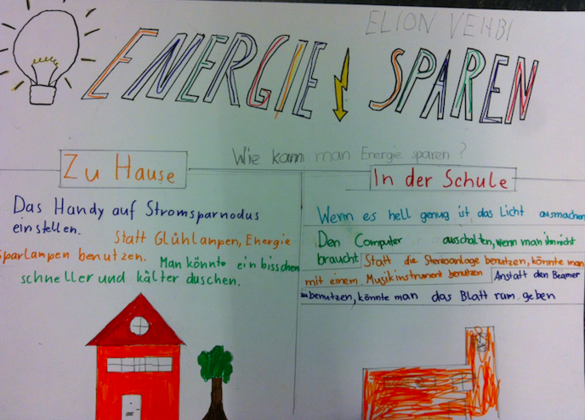 ELION VEHBI
ENERGIE SPAREN
Wie kann man Energie sparen?
Zu Hause
Das Handy auf Stromsparnodus
einstellen.
Statt Glühlanpen, Energie
sparlanpen benutzen. Man könnte ein bisschen
schneller und kälter duschen.
In der Schule
Wenn es hell genug ist das Licht ausmachen
Den Computer auschalten, wenn man ihn nicht
braucht Statt die Stereoanlage benutzen, könnte man
mit einem Musikinstrument benutzen Anstatt den Beamer
zu benutzen, könnte man das Blatt rum geben